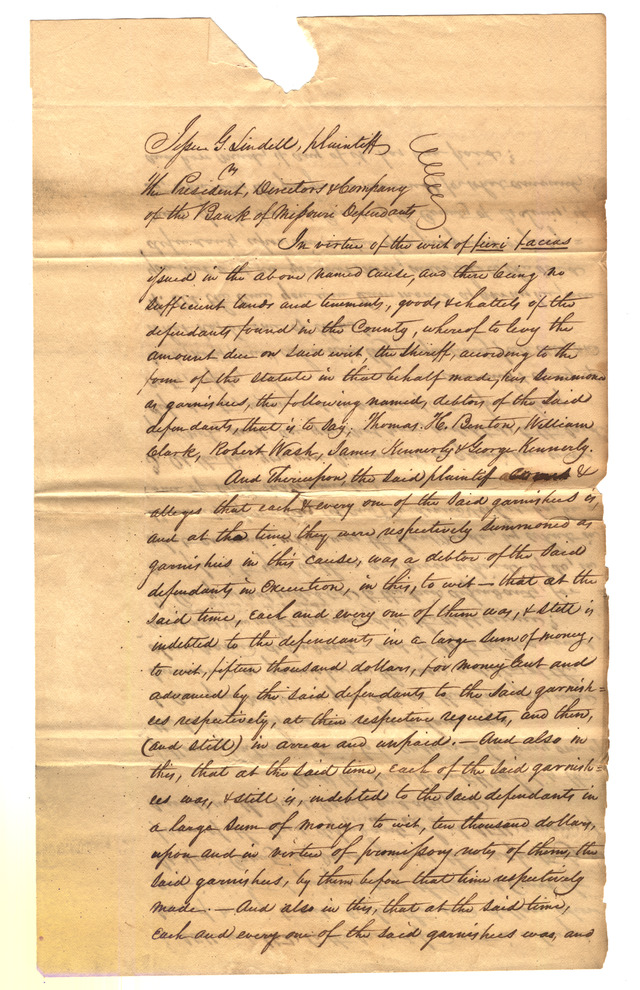 Jesse G. Lindell, plaintiff
vs
The President, Directors & Company
of the Bank of Missouri Defendants
In virtue of the writ of fieri facias
issued in the above named cause, and there being no
sufficient lands and tenements, goods & chattels of the
defendants found in the County, whereof to levy the
amount due on said writ, the Sheriff, according to the
form of the statute in that behalf made, has summoned
as garnishees, the following named, debtors of the said
defendants, that is to say. Thomas. H. Benton, William
Clark, Robert Wash, James Kennerly & George Kennerly.
And Thereupon, the said plaintif &
alleges that each & every one of the said garnishees is,
and at the time they were respectively summoned as
garnishees in this cause, was a debtor of the said
defendants in execution, in this, to wit — that at the
said time, each and every one of them was, & still is
indebted to the defendants in a large sum of money,
to wit, fifteen thousand dollars, for money lent and
advanced by the said defendants to the said garnish=
ees respectively, at their respective requests, and then,
(and still) in arrear and unpaid. — And also in
this, that at the said time, each of the said garnish=
ees was, & still is, indebted to the said defendants in
a large sum of money, to wit, ten thousand dollars,
upon and in virtue of promissory notes of them, the
said garnishees, by them before that time respectively
made. — And also in this, that at the said time,
each and every one of the said garnishees was, and